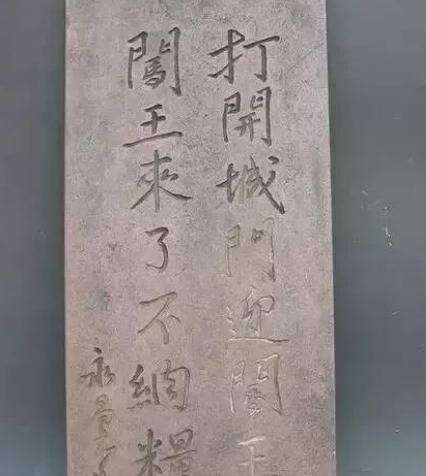 打開城門迎闖王
闖王來了不納糧
永